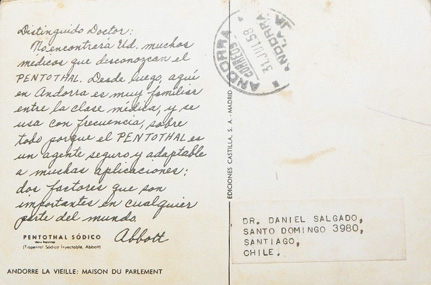 Distinguido Doctor:
No encontrerá Ud. muchos
médicos que desconozcan el
PENTOTHAL. Desde luego, aquí
en Andorra es muy familiar
entre la clase médica, y se
usa con frecuencia, sobre
todo porque el PENTOTHAL es
un agente seguro y adaptable
a muchas aplicaciones:
dos factores que son
importantes en cualquier
parte del mundo
Abbott
PENTOTHAL SÓDICO
(Tiopental Sódico Inyectable, Abbott)
ANDORRE LA VIEILLE: MAISON DU PARLEMENT
EDICIONES CASTILLA, S. A. - MADRID
ANDORRA
CORREOS
31 JUL 58
ANDORRA
DR. DANIEL SALGADO,
SANTO DOMINGO 3980,
SANTIAGO,
CHILE.